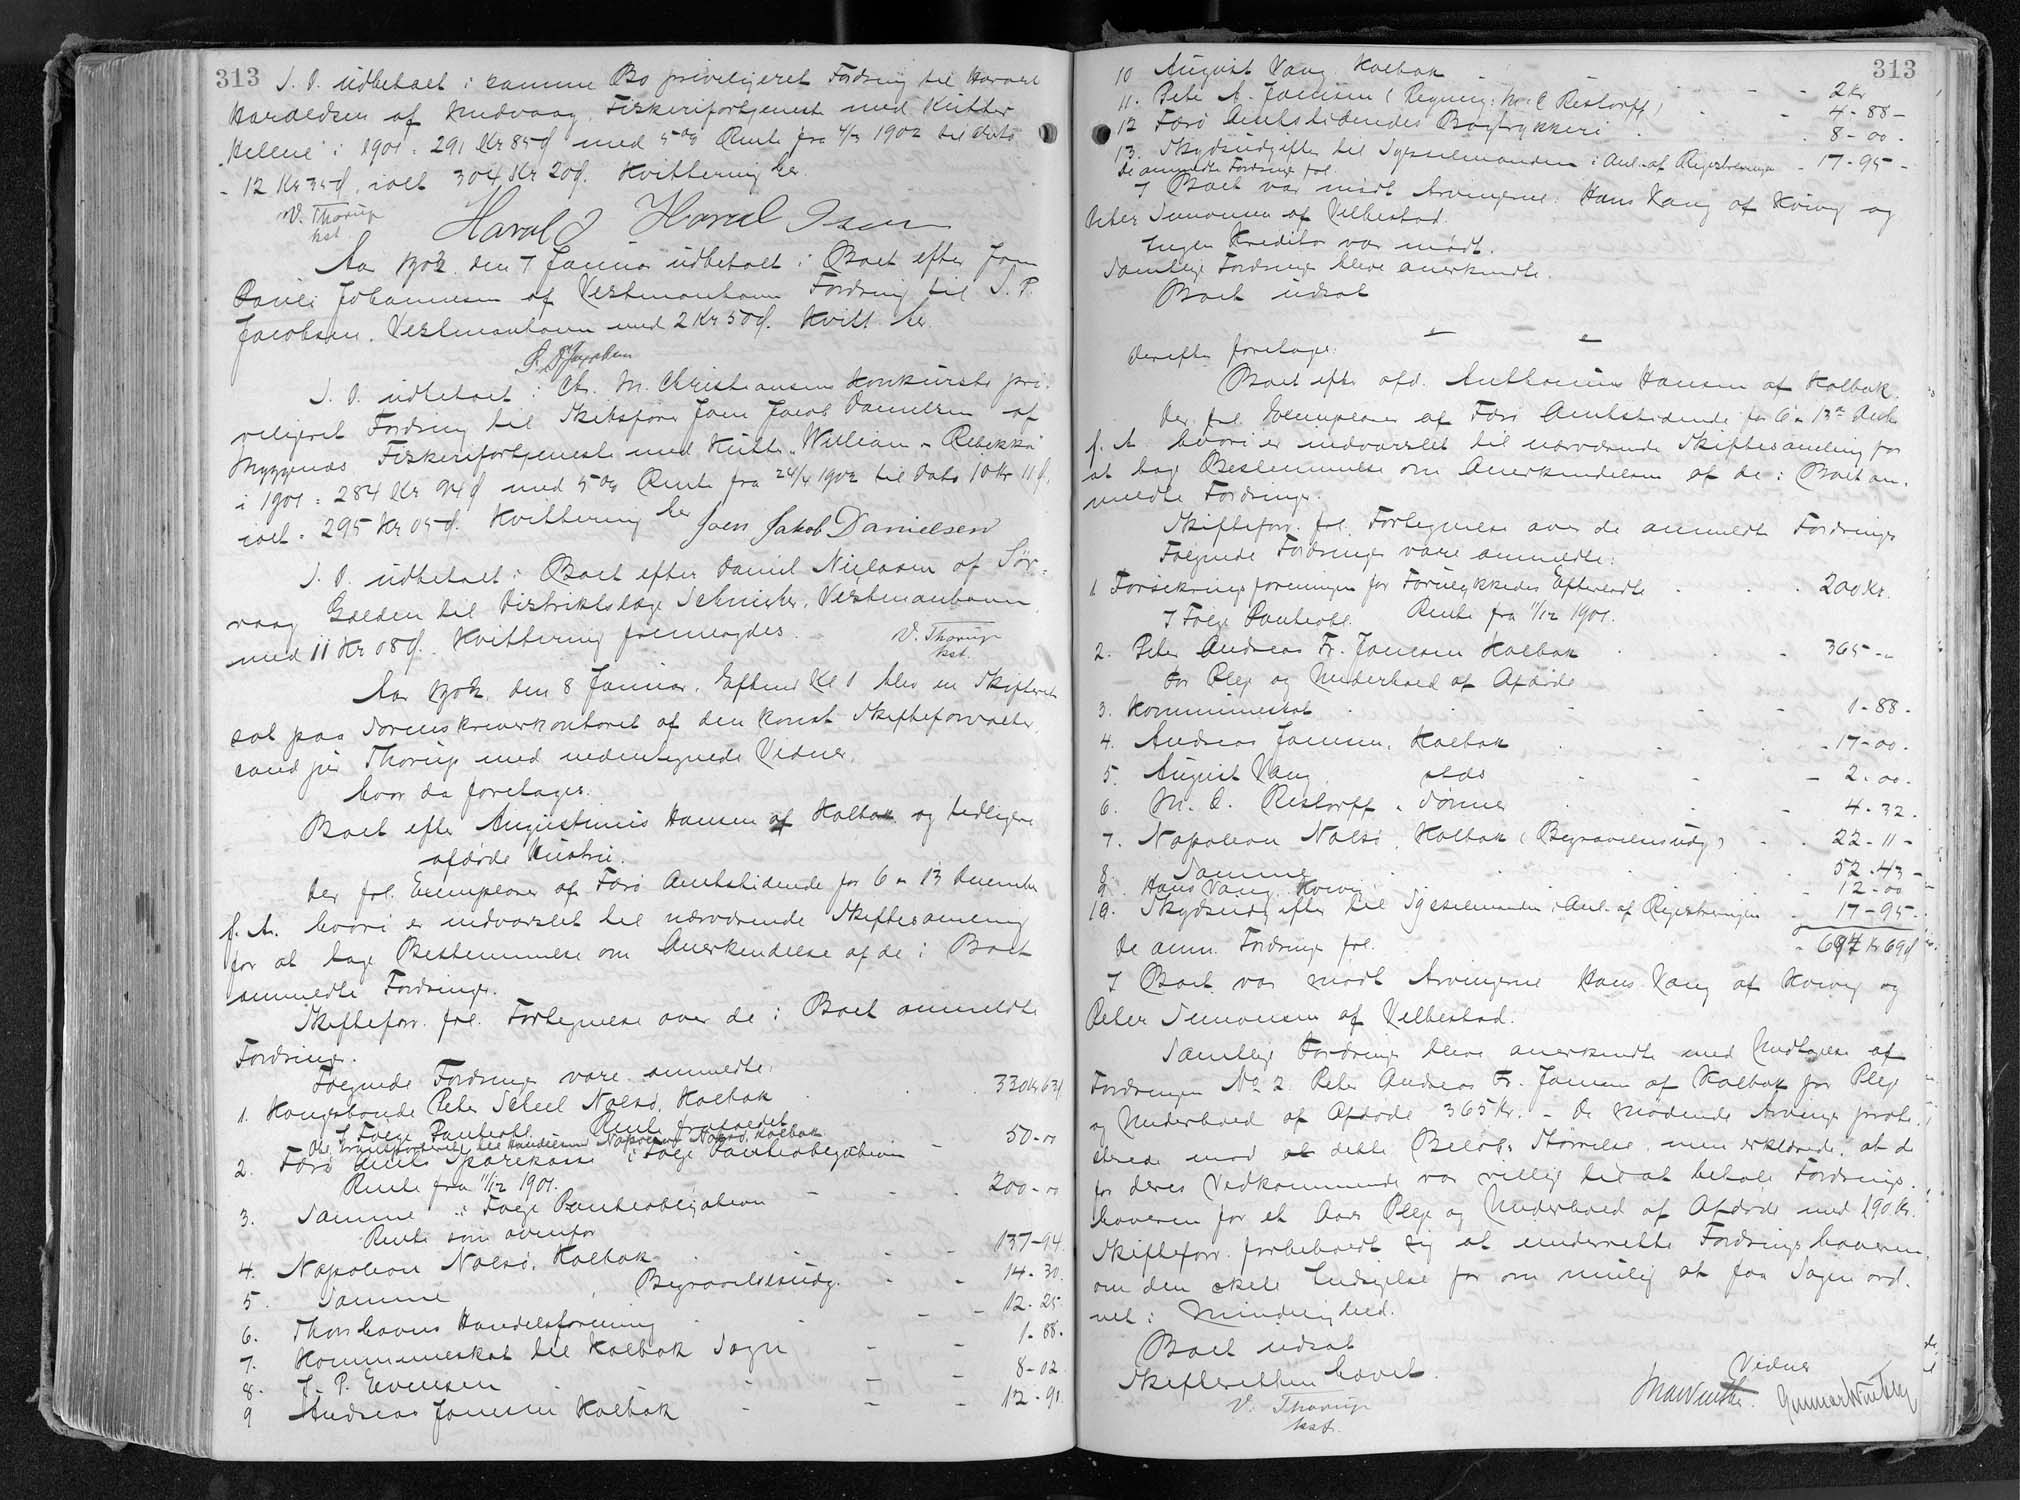 313
S. D. udbetalt i samme Bo priviligeret Fordring til Harald
Haraldsen af Midvaag, Fiskerifortjeneste med Kutter
"Helene" i 1901 = 291 Kr 85 Ø med 5% Rente fra 4/3 1902 til dato
- 12 Kr 35 Ø, ialt 304 Kr 20 Ø. Kvittering her.
V. Thorup
kst.
Harald Haraldsen
Aar 1903 den 7 Januar udbetalt i Boet efter Joen
Daniel Johannesen af Vestmanhavn Fordring til S. P.
Jacobsen, Vestmanhavn med 2 Kr 50 Ø. Kvitt. her
S. P. Jacobsen
S. D. udbetalt i Chr. M. Christiansens Konkursbo pri-
viligeret Fordring til Skibsfører Joen Jacob Danielsen af
Myggenæs Fiskerifortjeneste med Kutter "William & Rebekka"
i 1901 = 284 Kr 94 Ø med 5% Rente fra 24/4 1902 til dato 10 Kr 11 Ø,
ialt = 295 Kr 05 Ø. Kvittering her
Joen Jakob Danielsen
S. D. udbetalt i Boet efter Daniel Niclasen af Sør-
vaag Gælden til Distriktslæge Schrøter, Vestmanhavn
med 11 Kr 08 Ø. Kvittering fremlagdes.
V. Thorup
kst.
Aar 1903 den 8 Januar, Efterm. Kl 1 blev en Skifteret
sat paa Sorenskriverkontoret af den konst. Skifteforvalter
cand jur Thorup med undertegnede Vidner,
hvor da foretages:
Boet efter Augustinus Hansen af Kalbak og tidligere
afdøde Hustru.
Der frl. Exemplarer af Færø Amtstidende for 6 & 13 December
f. A. hvori er indvarslet til nærværende Skiftesamling
for at tage Bestemmelse om Anerkendelse af de i Boet
anmeldte Fordringer.
Skifteforv. frl. Fortegnelse over de i Boet anmeldte
Fordringer.
Følgende Fordringer vare anmeldte:
1. Kongsbonde Peter Scheel Nolsø, Kalbak 330 Kr 63 Ø
I Følge Panteobl. Rente fradaadet
Obl. transporteret til Handelsmd. Napoleon Nolsø, Kalbak
2. Færø Amts Sparekasse i Følge Panteobligation - 50-00
Rente fra 11/12 1901.
3. Samme i Følge Panteobligation - 200-00
Rente som ovenfor
4. Napoleon Nolsø, Kalbak - 137-94
5. Samme, Begravelsesudg. - 14-30.
6. Thorshavns Handelsforening - 12-25.
7. Kommuneskat til Kalbak Sogn - 1-88-
8. J. P. Evensen - 8-02
9 Andreas Joensen Kalbak - 12-91
313
10 August Vang, Kalbak - 2 Kr
11. Peter A. Joensen (Regning: M. C. Restorff) - 4-88-
12 Færø Amtstidendes Bogtrykkeri - 8-00-
13. Skydsudgifter til Sysselmanden i Anl. af Registreringen - 17-95-
De anmeldte Fordringer frl.
I Boet var mødt Arvingerne: Hans Vang af Kvivig og
Peter Simonsen af Velbestad.
Ingen Kreditor var mødt.
Samtlige Fordringer bleve anerkendte.
Boet udsat
Derefter foretages:
Boet efter afd. Anthonius Hansen af Kalbak.
Der frl. Exemplarer af Færø Amtstidende for 6 & 13de Decbr
f. A. hvori er indvarslet til nærværende Skiftesamling for
at tage Bestemmelse om Anerkendelsen af de i Boet an-
meldte Fordringer.
Skifteforv. frl. Fortegnelse over de anmeldte Fordringer
Følgende Fordringer vare anmeldte:
1 Forsikringsforeningen for Forulykkedes Efterladte - 200 Kr.
I Følge Panteobl. Rente fra 11/12 1901.
2. Peter Andreas Fr. Joensen Kalbak - 365-"
for Pleje og Underhold af Afdøde
3. Kommuneskat - 1-88-
4. Andreas Joensen, Kalbak - 17-00-
5. August Vang, stds - 2-00-
6. M. C. Restorff & Sønner - 4-32-
7. Napoleon Nolsø, Kalbak (Begravelsesudg) - 22-11-
8. Samme - 52-43-
9. Hans Vang, Kvivig - 12-00
10. Skydsudgifter til Sysselmanden i Anl. af Registreringen - 17-95-
De anm. Fordringer frl. - 694 Kr 69 Ø
I Boet var mødt Arvingerne Hans Vang af Kvivig og
Peter Simonsen af Velbestad.
Samtlige Fordringer bleve anerkendte med Undtagelse af
Fordringen No 2. Peter Andreas Fr. Joensen af Kalbak for Pleje
og Underhold af Afdøde 365 Kr. - De mødende Arvinger prote-
sterede mod dette Beløbs Størrelse, men erklærede, at de
for deres Vedkommende var villige til at betale Fordrings-
haveren for et Aars Pleje og Underhold af Afdøde med 190 Kr.
Skifteforv. forbeholdt sig at underrette Fordringshaveren
om den skete Indsigelse for om mulig at faa Sagen ord-
net i Mindelighed.
Boet udsat
Skifteretten hævet.
V. Thorup
kst.
Vidner